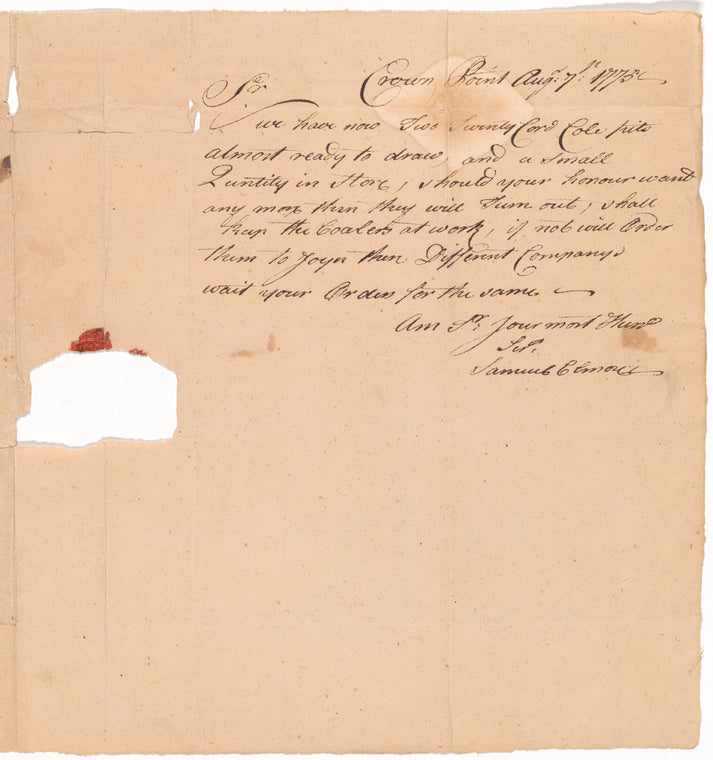 Crown Point Augt. 7th. 1775
Sr
we have now Two Twenty Cord Cole pits
almost ready to draw, and a small
Quntity in Store, should your honour want
any more then they will Turn out, shall
keep the Coalers at work, if not will Order
them to Joyn their Different Companys
wait your Orders for the same
Am Sr. Your most Humb
Ser.
Samuel Elmore